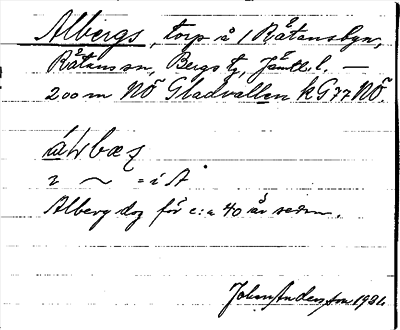 Albergs, torp å 1 Råtansbyn,
Råtans sn, Bergs tg, Jämtl. l. —
200 m NÖ Gladvallen kG 77 NÖ.
= i A
Alberg dog för c:a 40 år sedan.
John Anderson 1936.